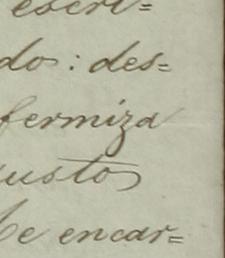 escri=
do: des=
fermiza
gustos
le encar=